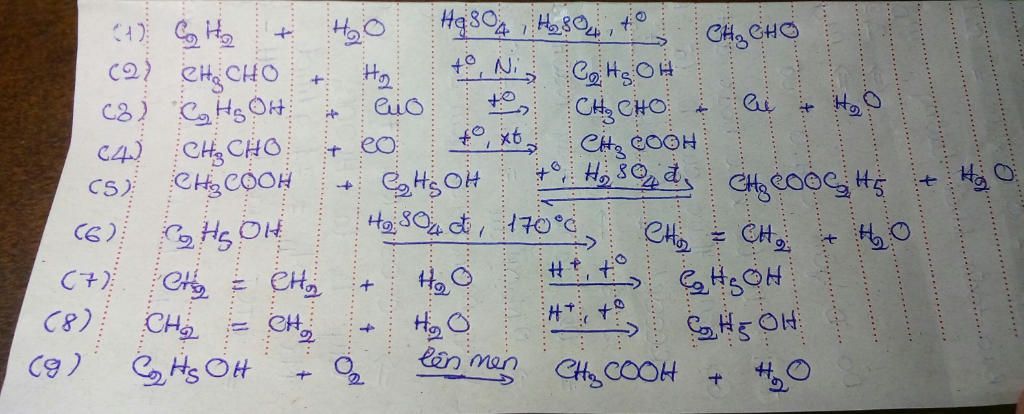 (1) C₂H₂ + H₂O HgSO₄, H₂SO₄, t⁰ → CH₃CHO
(2) CH₃CHO + H₂ t⁰, Ni → C₂H₅OH
(3) C₂H₅OH + CuO t⁰ → CH₃CHO + Cu + H₂O
(4) CH₃CHO + CO t⁰, xt → CH₃COOH
(5) CH₃COOH + C₂H₅OH t⁰, H₂SO₄ đ, ⇌ CH₃COOC₂H₅ + H₂O
(6) C₂H₅OH H₂SO₄ đ, 170⁰C → CH₂ = CH₂ + H₂O
(7) CH₂ = CH₂ + H₂O H⁺, t⁰ → C₂H₅OH
(8) CH₂ = CH₂ + H₂O H⁺, t⁰ → C₂H₅OH
(9) C₂H₅OH + O₂ lên men → CH₃COOH + H₂O